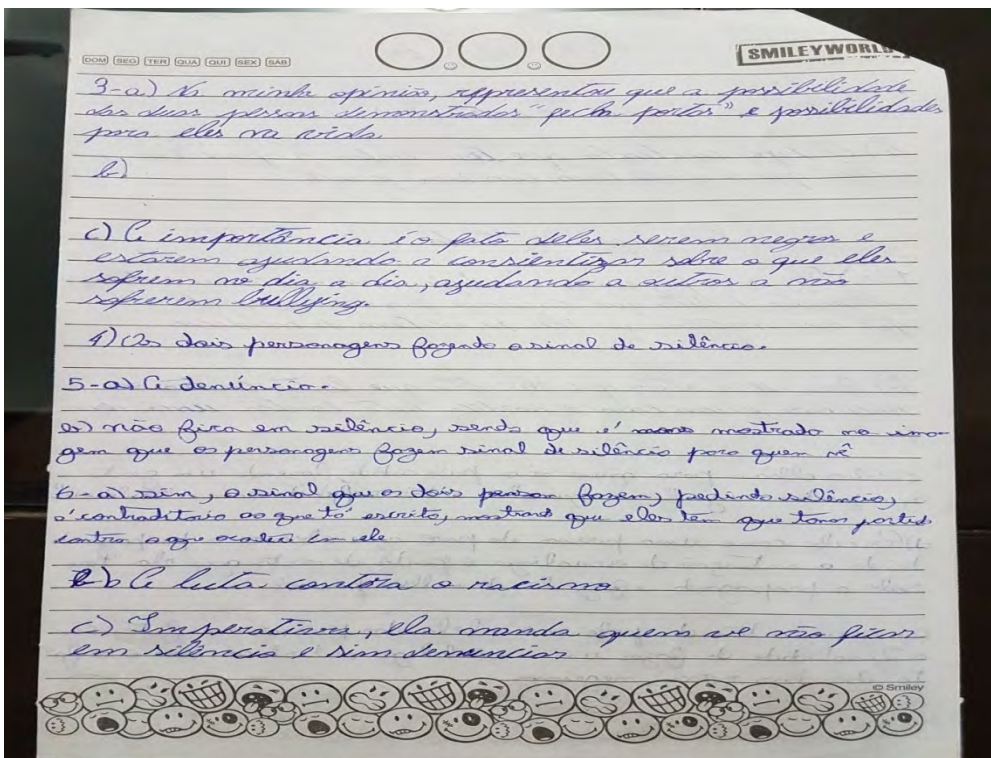 DOM SEG TER QUA QUI SEX SAB
SMILEYWORLD
3-a) Na minha opinião, representou que a possibilidade
das duas pessoas demonstradas "fecha portas" e possibilidades
para eles na vida
b)
c) A importância é o fato deles serem negros e
estarem ajudando a consientizar sobre o que eles
sofrem no dia a dia, ajudando a outros a não
soferem bullying.
4) Os dois personagens fazendo a sinal de silêncio.
5-a) A denúncia.
b) não fica em silêncio, sendo que é mostrado na ima-
gem que os personagens fazem sinal de silêncio para quem vê
6-a) sim, o sinal que os dois fazem, pedindo silêncio,
é contraditorio ao que tá escrito, mostrando que eles têm que tomar partido
contra o que
b) A luta contra o racismo
c) Imperativa, ela manda quem vê não ficar
em silêncio e sim denunciar
© Smiley